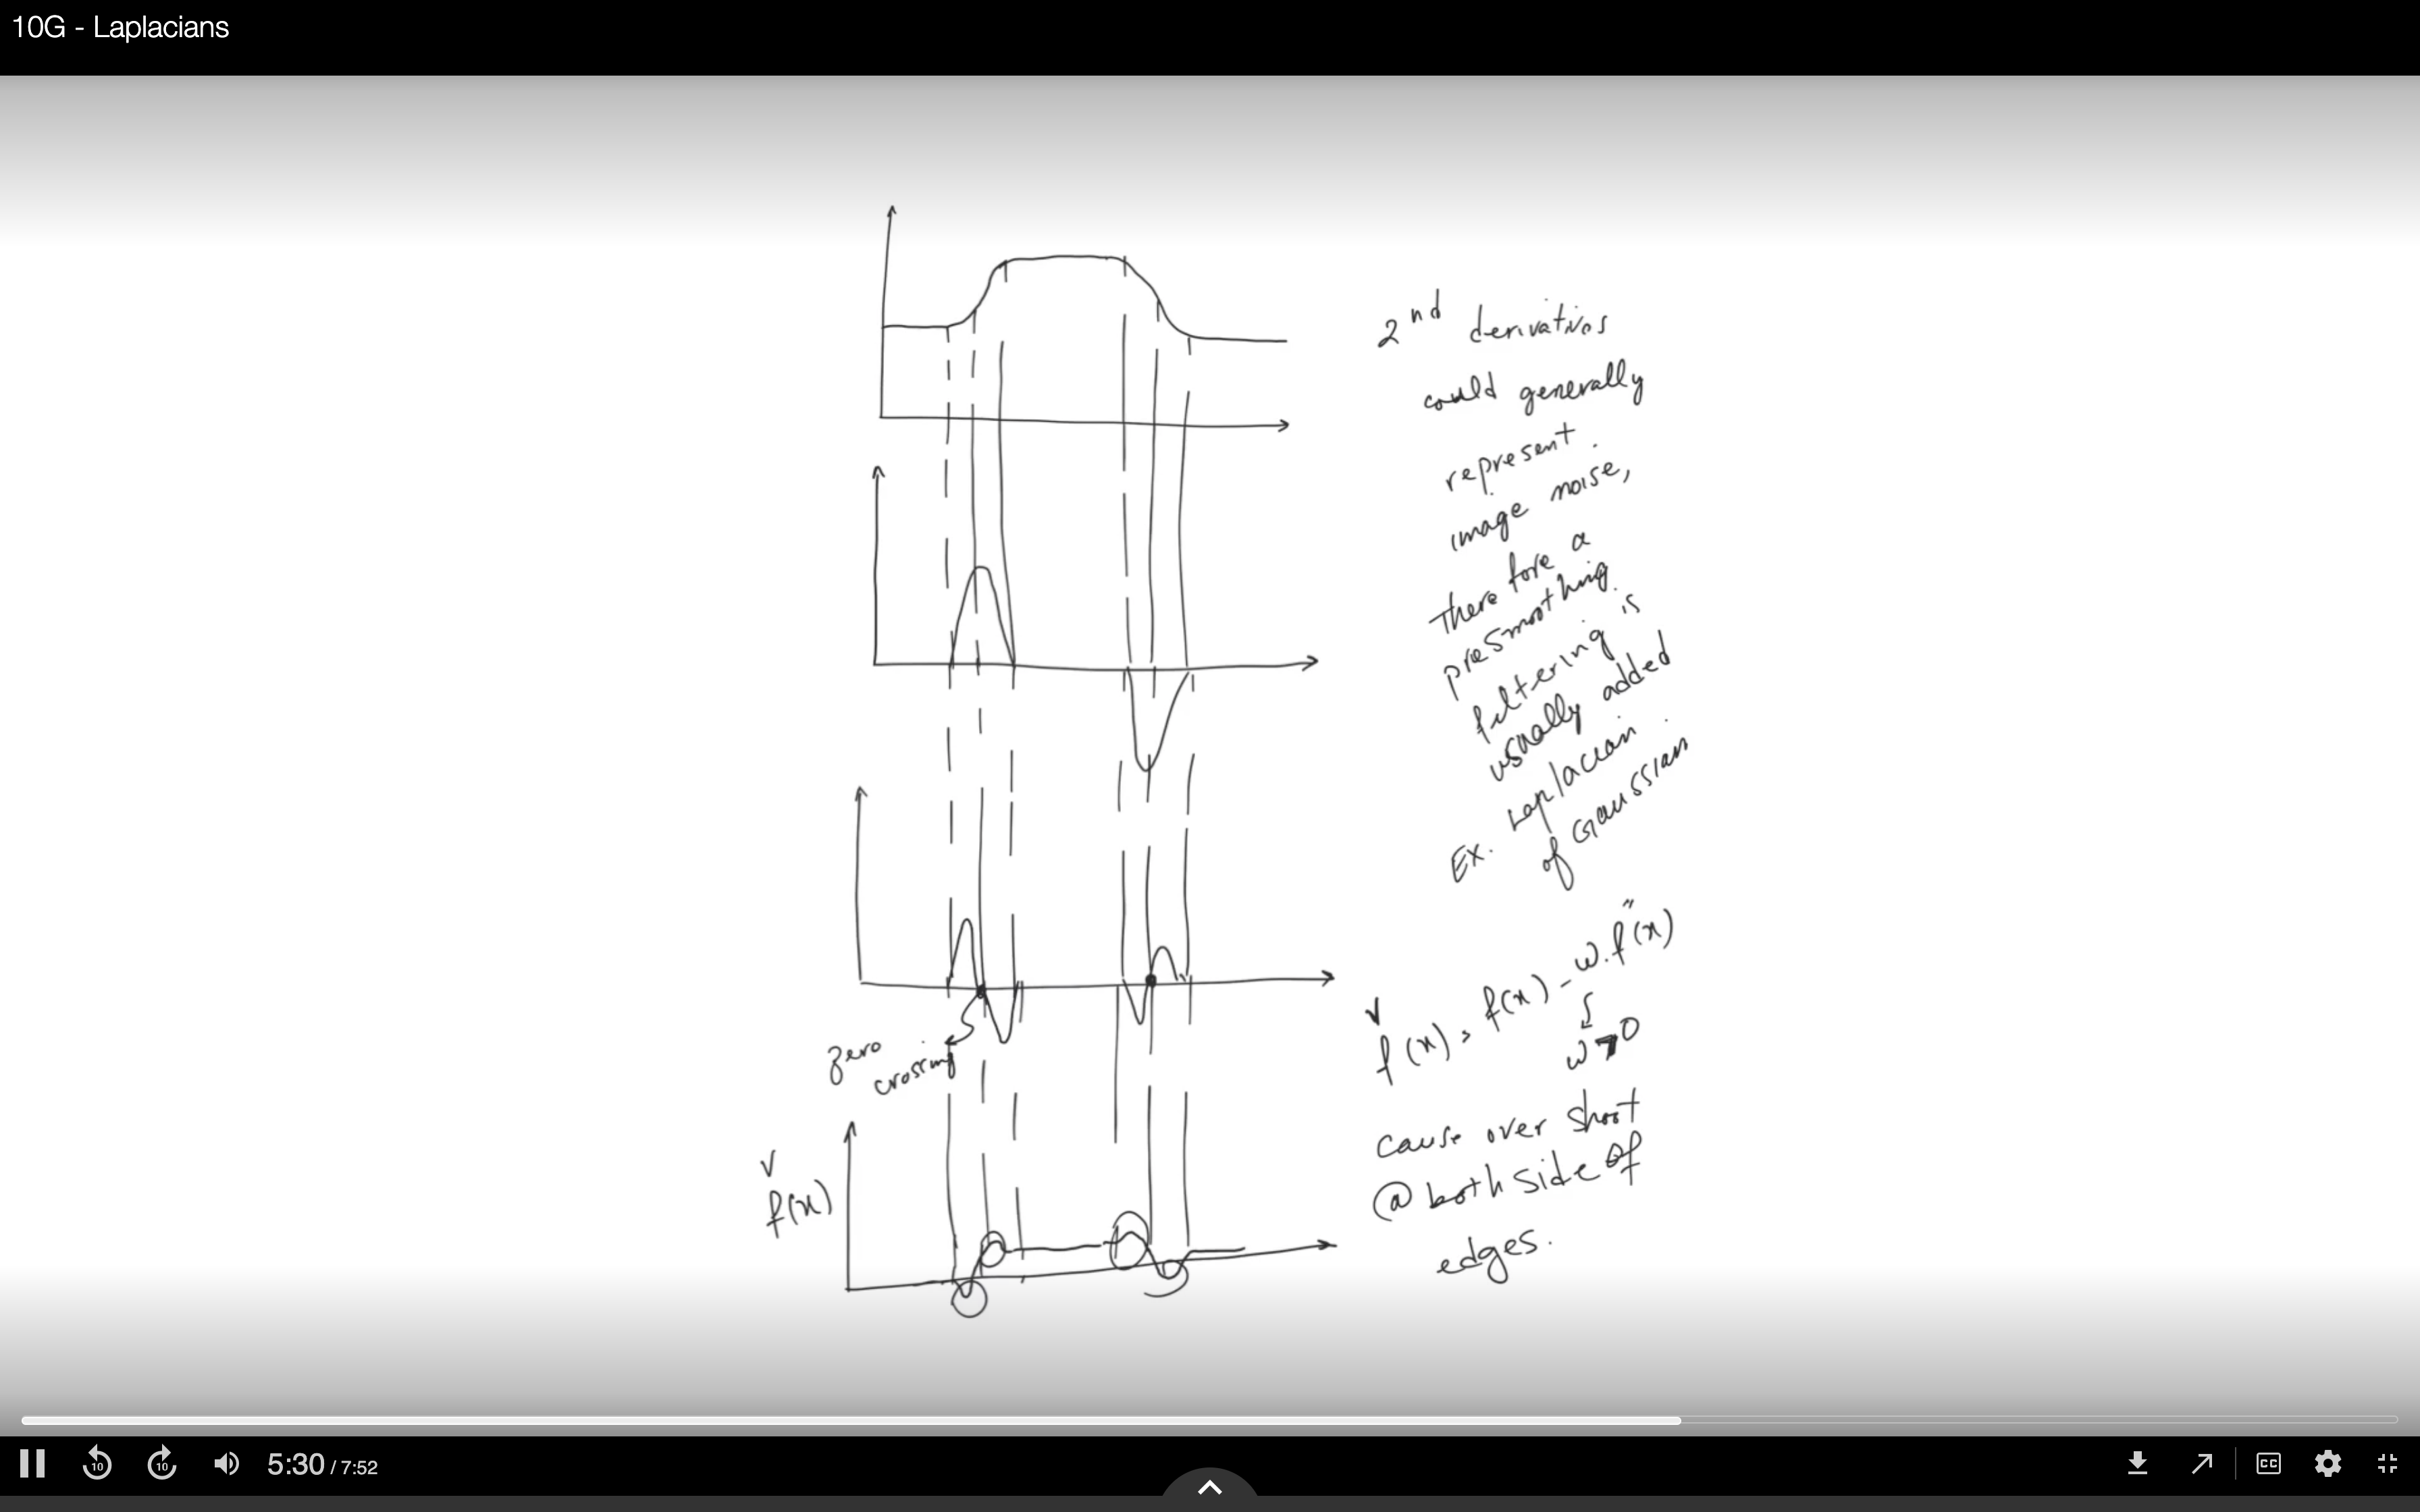 10G - Laplacians
2nd derivatives
could generally
represent
image noise,
There fore a
presmoothing
filtering is
usually added
Ex. Laplacian
of Gaussian
zero
crossing
f̌(x) = f(x) - w.f"(x)
w > 0
f̌(x)
cause over shoot
@ both side of
edges.
5:30 / 7:52
10
10
CC